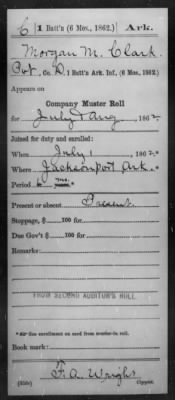 C | 1 Batt'n (6 Mos., 1862.) | Ark.
Morgan M. Clark
Pvt, Co. D, 1 Batt'n Ark. Inf. (6 Mos., 1862.)
Appears on
Company Muster Roll
for July & Aug, 1862.
Joined for duty and enrolled:
When July 1, 1862.*
Where Jacksonport Ark.*
Period 6 mos.*
Present or absent Present
Stoppage, $ 100 for
Due Gov't $ 100 for
Remarks:
FROM SECOND AUDITOR'S ROLL.
enrollment on card from muster-in roll.
Book mark:
F. A. Wright
Copyist.